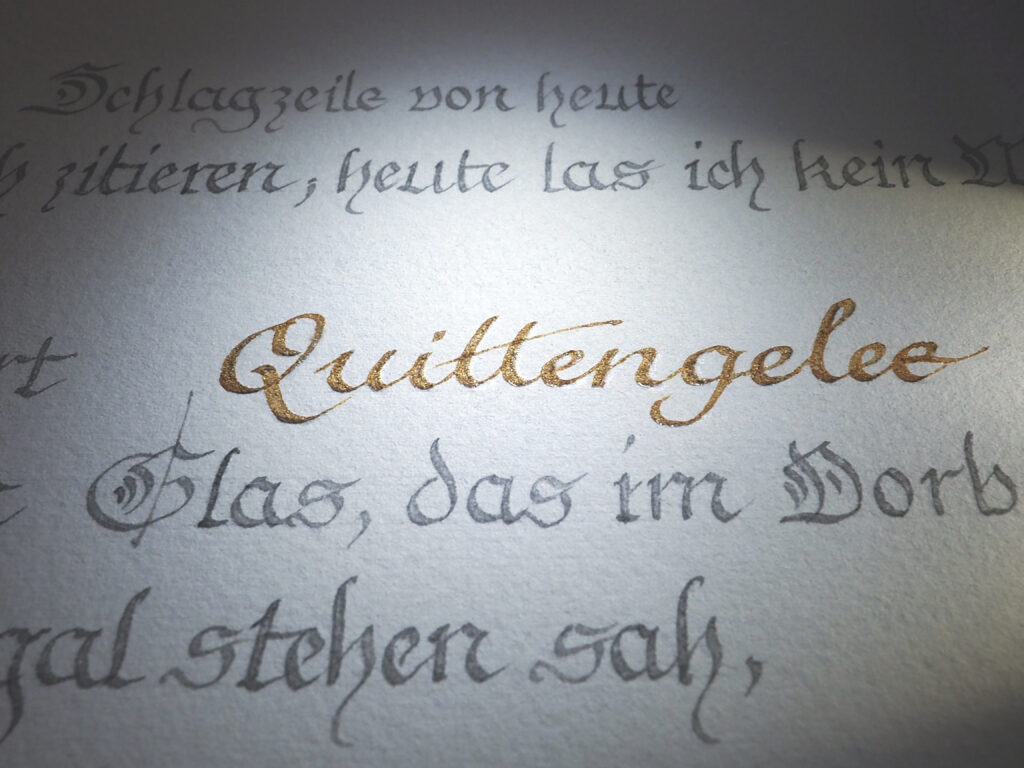 Schlagzeile von heute
zitieren, heute las ich kein
Quittengelee
Glas, das im Vorb
gal stehen sah,